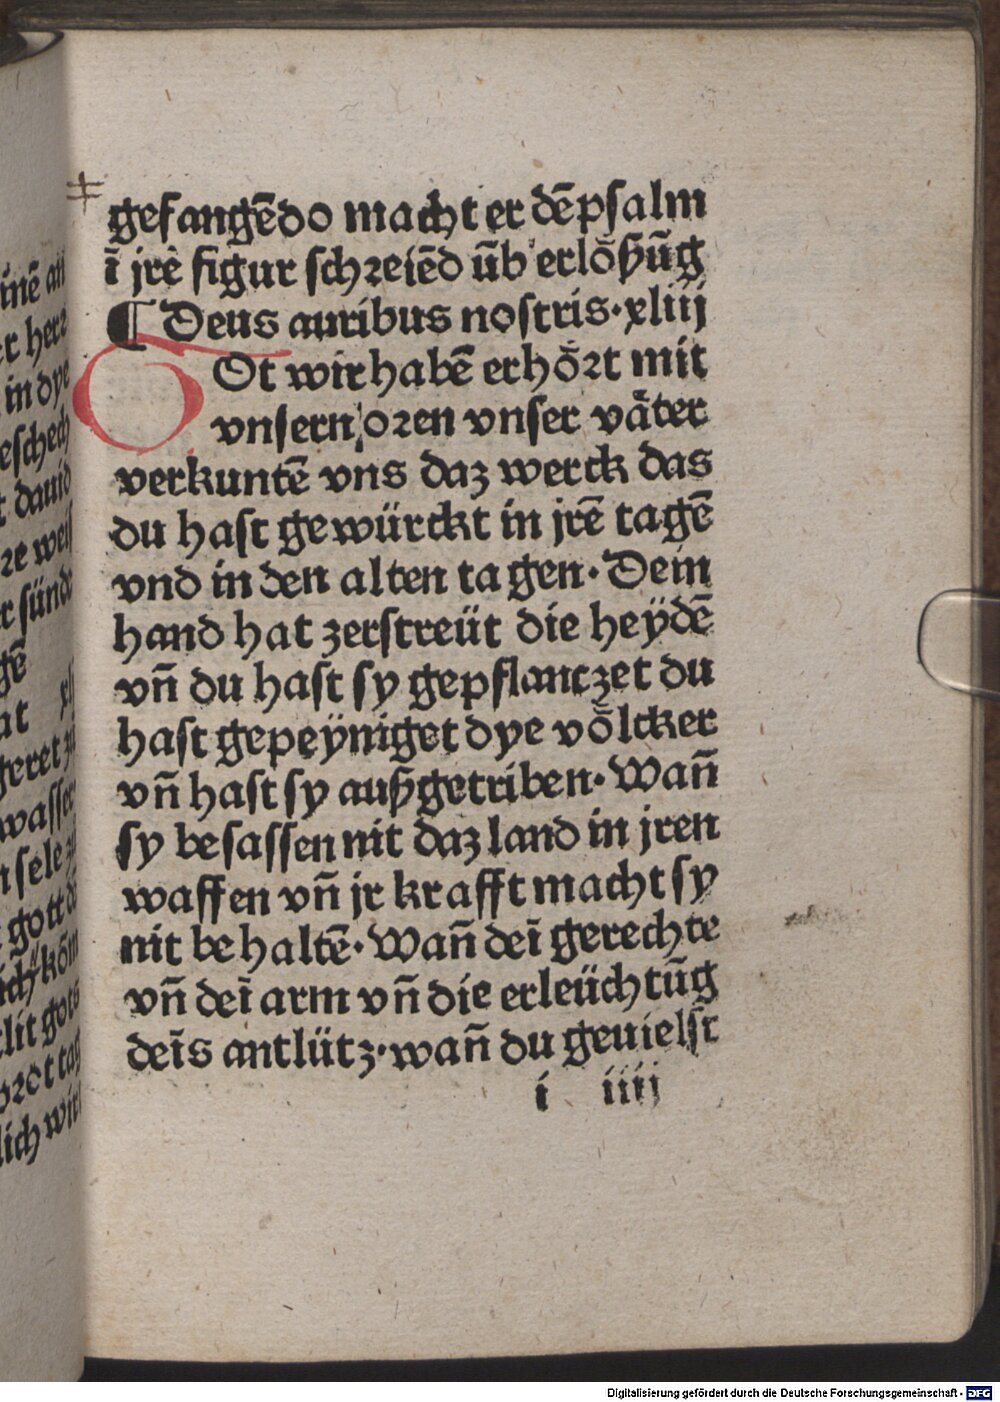 gefangēdo macht er dē psalm
ī jrē figur schreiēd ūb erlȫßūg
¶ Deus auribus nostris · xliij
Ot wir habē erhört mit
vnsern oren vnser väter
verkuntē vns daz werck das
du hast gewürckt in jrē tagē
vnd in den alten tagen · Dein
hand hat zerstreüt die heÿdē
vn̄ du hast sy gepflanczet du
hast gepeÿniget dye völcker
vn̄ hast sy außgetriben · Wan̄
sy besassen nit daz land in jren
waffen vn̄ jr krafft macht sy
nit behaltē · Wan̄ deī gerechte
vn̄ deī arm vn̄ die erleüchtūg
deīs antlütz · wan̄ du geuielst
i iiij
Digitalisierung gefördert durch die Deutsche Forschungsgemeinschaft - DFG